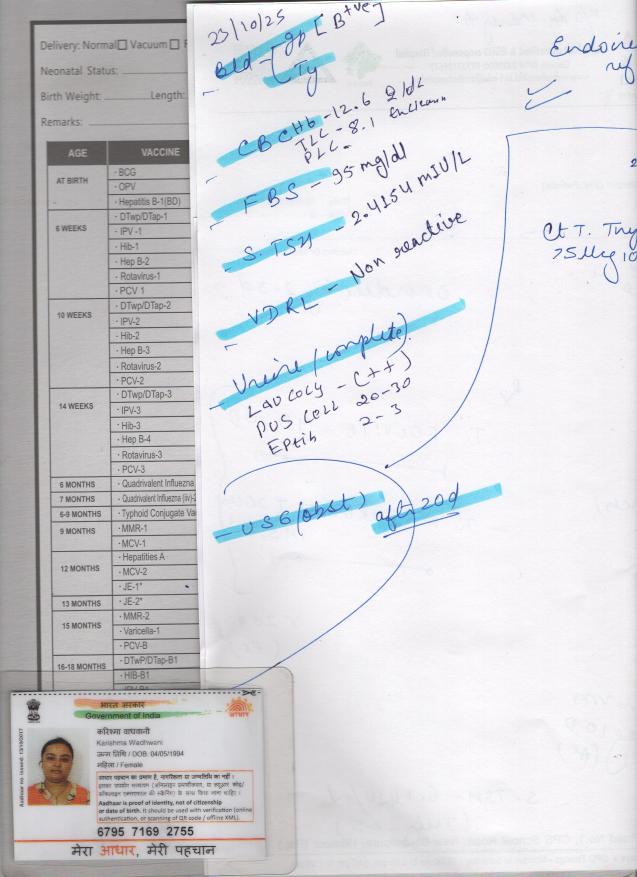 Delivery: Normal☐ Vacuum ☐ F
Neonatal Status:
Birth Weight: Length:
Remarks:
AGE VACCINE
AT BIRTH
· BCG
· OPV
· Hepatitis B-1(BD)
6 WEEKS
· DTwp/DTap-1
· IPV -1
· Hib-1
· Hep B-2
· Rotavirus-1
· PCV 1
10 WEEKS
· DTwp/DTap-2
· IPV-2
· Hib-2
· Hep B-3
· Rotavirus-2
· PCV-2
14 WEEKS
· DTwp/DTap-3
· IPV-3
· Hib-3
· Hep B-4
· Rotavirus-3
· PCV-3
6 MONTHS · Quadrivalent Influezna
7 MONTHS · Quadrivalent Influezna (iiv)-2
6-9 MONTHS · Typhoid Conjugate Va
9 MONTHS
· MMR-1
· MCV-1
12 MONTHS
· Hepatities A
· MCV-2
· JE-1*
13 MONTHS · JE-2*
15 MONTHS
· MMR-2
· Varicella-1
· PCV-B
16-18 MONTHS
· DTwP/DTap-B1
· HIB-B1
23/10/25
Bld - [gp [B+ve]
[Ty
- CBC Hb - 12.6 g/dL
TLC - 8.1
PLC -
- FBS - 95 mg/dl
- S.TSH - 2.4154 mIU/L
- VDRL - Non reactive
- Urine/complete)
Leucocy - (++)
Pus cell 20-30
Epith 2-3
- USG (obst) after 20d
Endocrine
ref
Ct T. Thy
75 Mcg
भारत सरकार
Government of India
Aadhaar no. issued: 13/10/2017
करिश्मा वाधवानी
Karishma Wadhwani
जन्म तिथि / DOB: 04/05/1994
महिला / Female
आधार पहचान का प्रमाण है, नागरिकता या जन्मतिथि का नहीं ।
Aadhaar is proof of identity, not of citizenship
or date of birth. It should be used with verification (online
authentication, or scanning of QR code / offline XML).
6795 7169 2755
मेरा आधार, मेरी पहचान